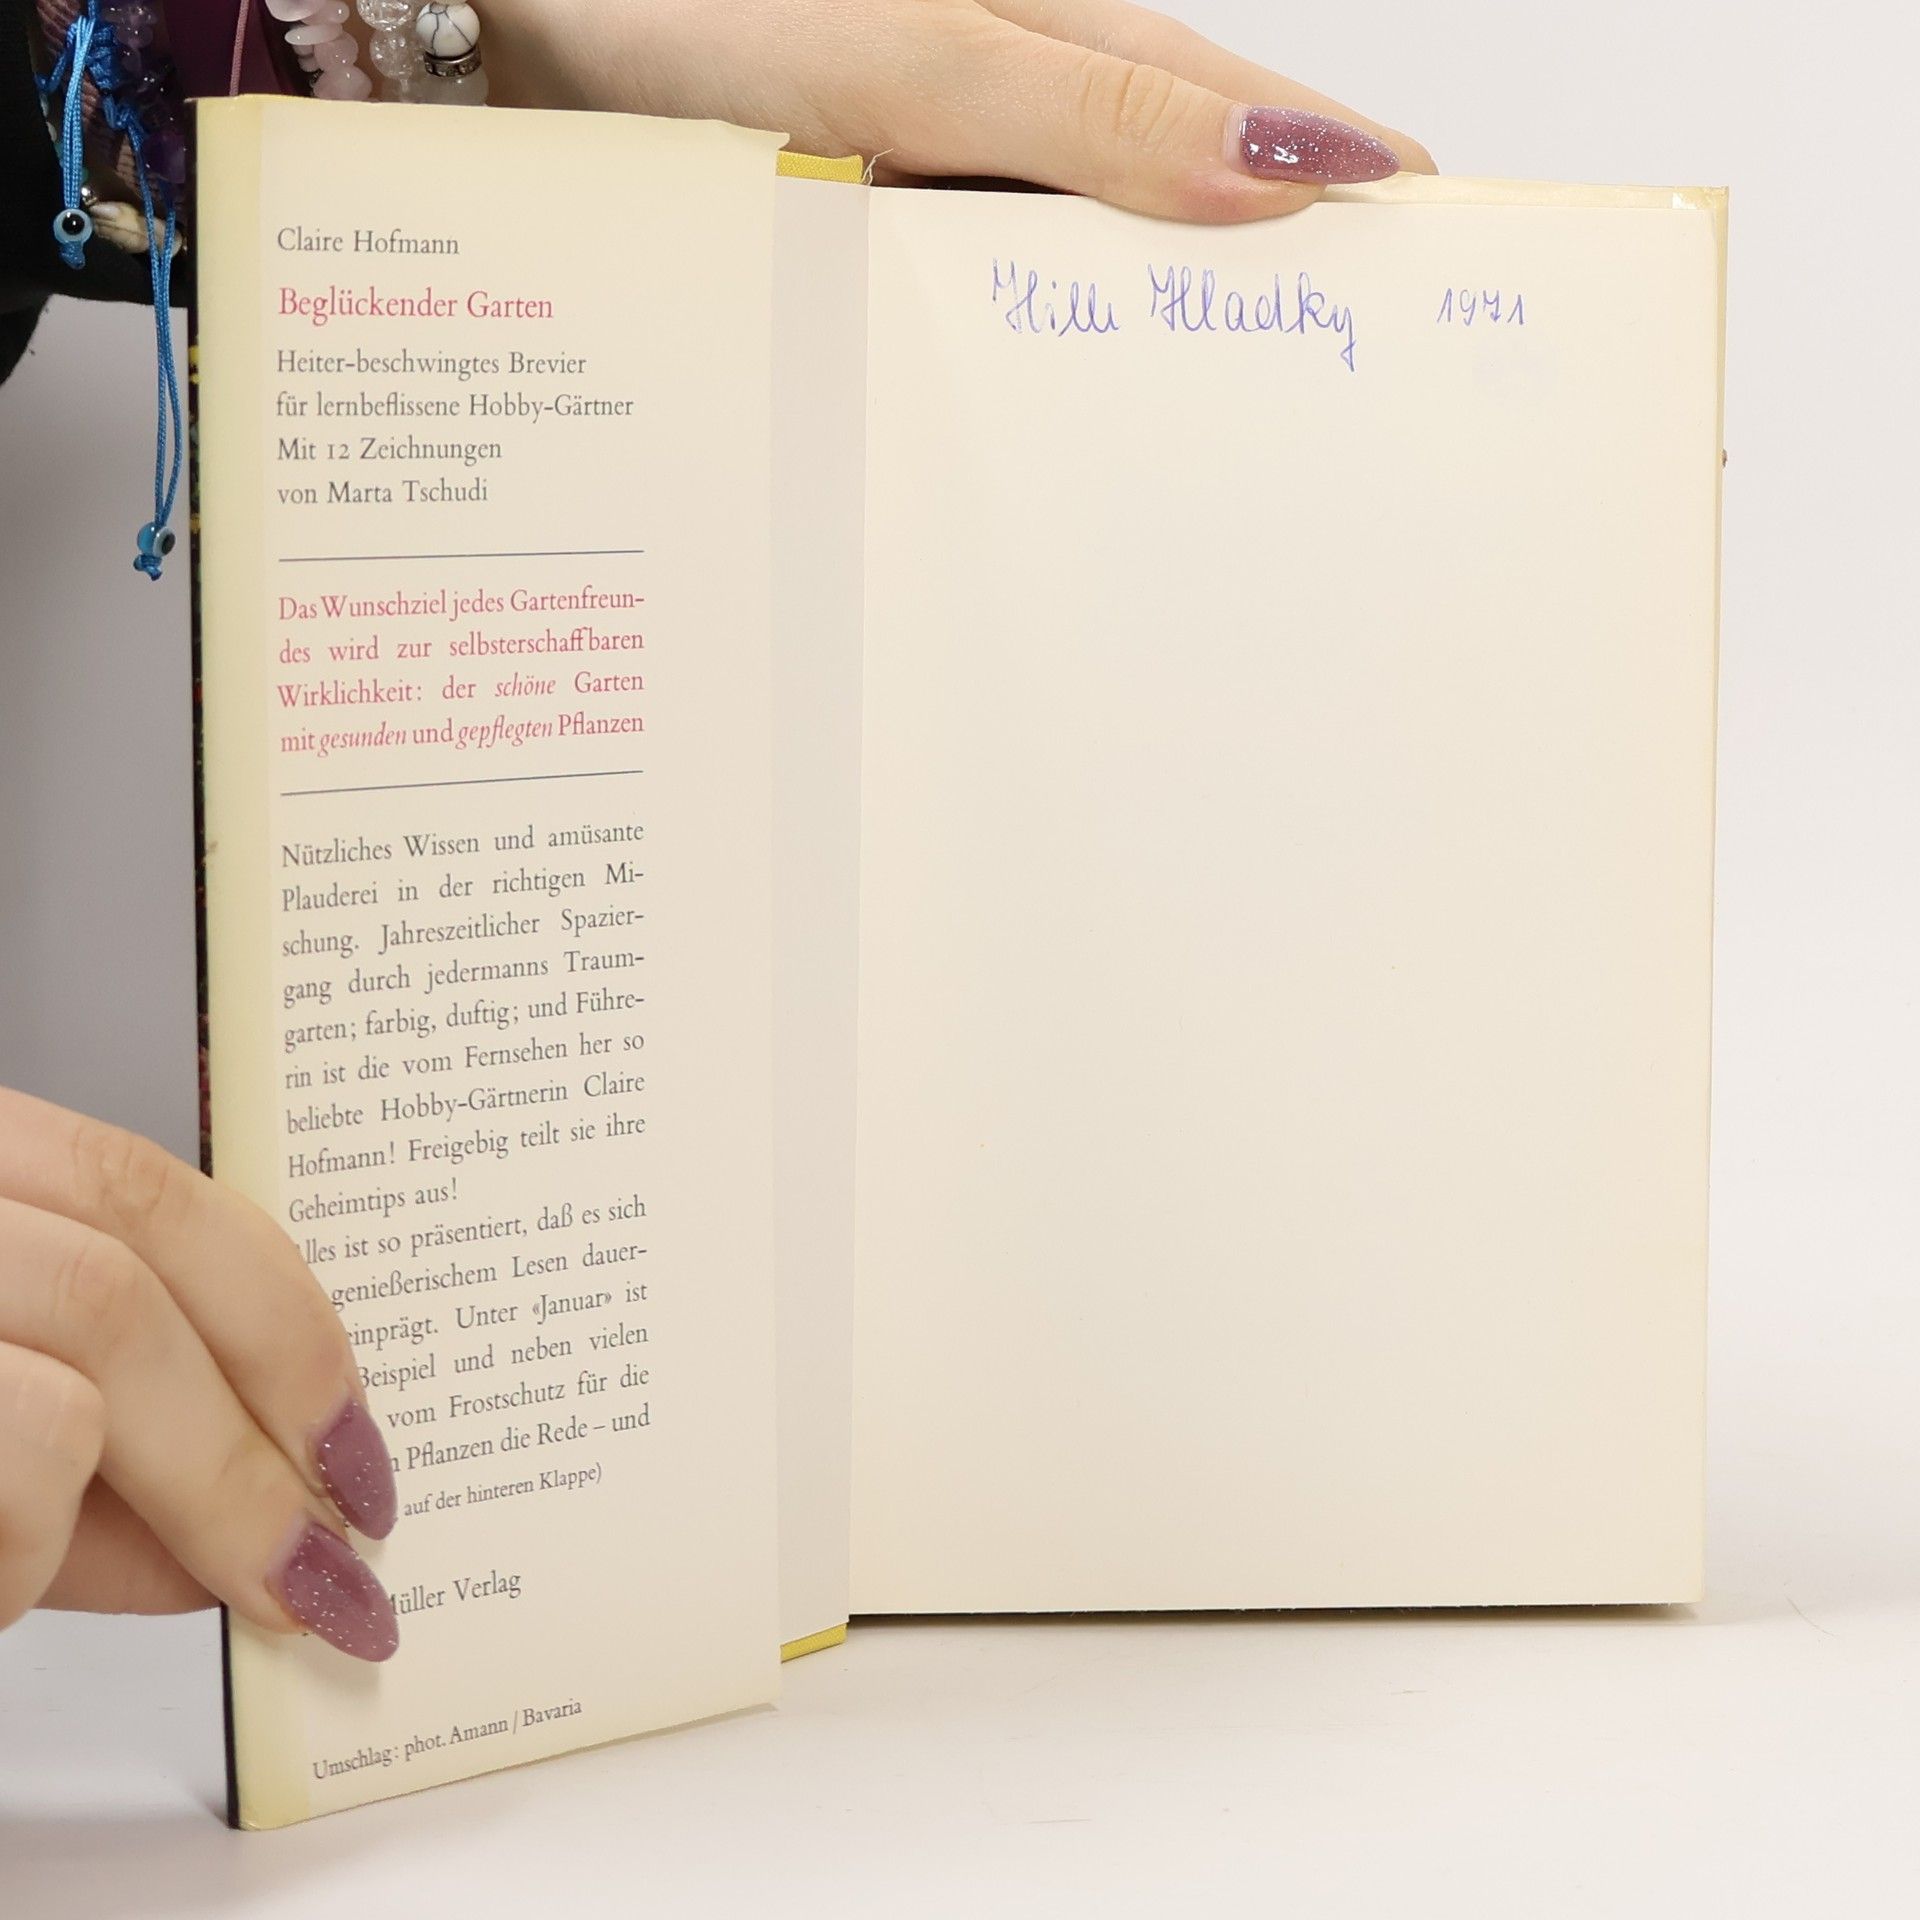 Claire Hofmann
Beglückender Garten
Heiter-beschwingtes Brevier
für lernbeflissene Hobby-Gärtner
Mit 12 Zeichnungen
von Marta Tschudi
Das Wunschziel jedes Gartenfreun-
des wird zur selbsterschaffbaren
Wirklichkeit: der schöne Garten
mit gesunden und gepflegten Pflanzen
Nützliches Wissen und amüsante
Plauderei in der richtigen Mi-
schung. Jahreszeitlicher Spazier-
gang durch jedermanns Traum-
garten; farbig, duftig; und Führe-
rin ist die vom Fernsehen her so
beliebte Hobby-Gärtnerin Claire
Hofmann! Freigebig teilt sie ihre
Geheimtips aus!
lles ist so präsentiert, daß es sich
genießerischem Lesen dauer-
einprägt. Unter «Januar» ist
Beispiel und neben vielen
vom Frostschutz für die
n Pflanzen die Rede – und
auf der hinteren Klappe)
Müller Verlag
Umschlag: phot. Amann / Bavaria
Hladky 1971